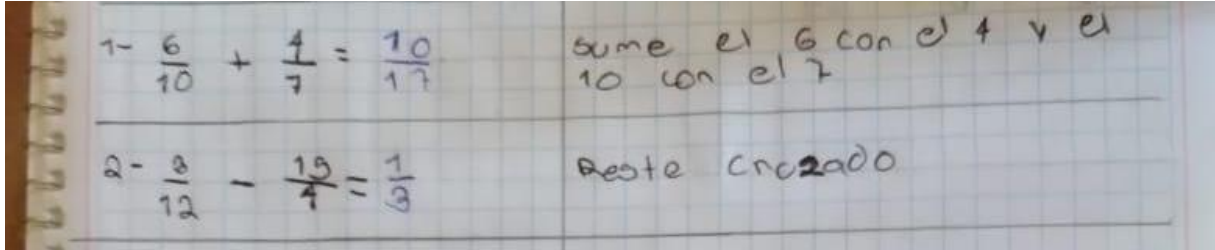 1- 6/10 + 4/7 = 10/17
sume el 6 con el 4 y el
10 con el 7
2- 3/12 - 15/4 = 1/3
Reste cruzado